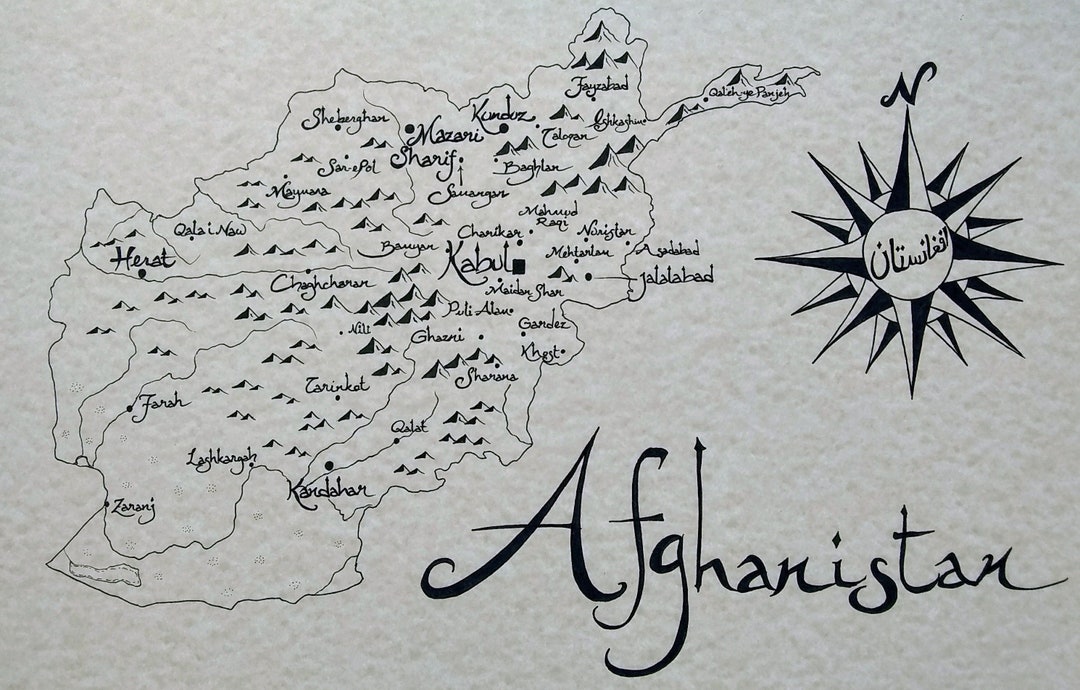 N
Fayzabad
Qal'eh-ye Panjeh
Sheberghan
Kunduz
Eshkashim
Mazari
Sharif
Taloqan
Sar-e Pol
Baghlan
Maymana
Samangan
Mahmud
Raqi
Qala i Naw
Charikar
Nuristan
Bamyan
Mehtarlam
Asadabad
Herat
Kabul
افغانستان
Jalalabad
Chaghcharan
Maidan Shar
Puli Alam
Nili
Ghazni
Gardez
Khost
Sharana
Tarinkot
Farah
Qalat
Lashkargah
Kandahar
Zaranj
Afghanistan